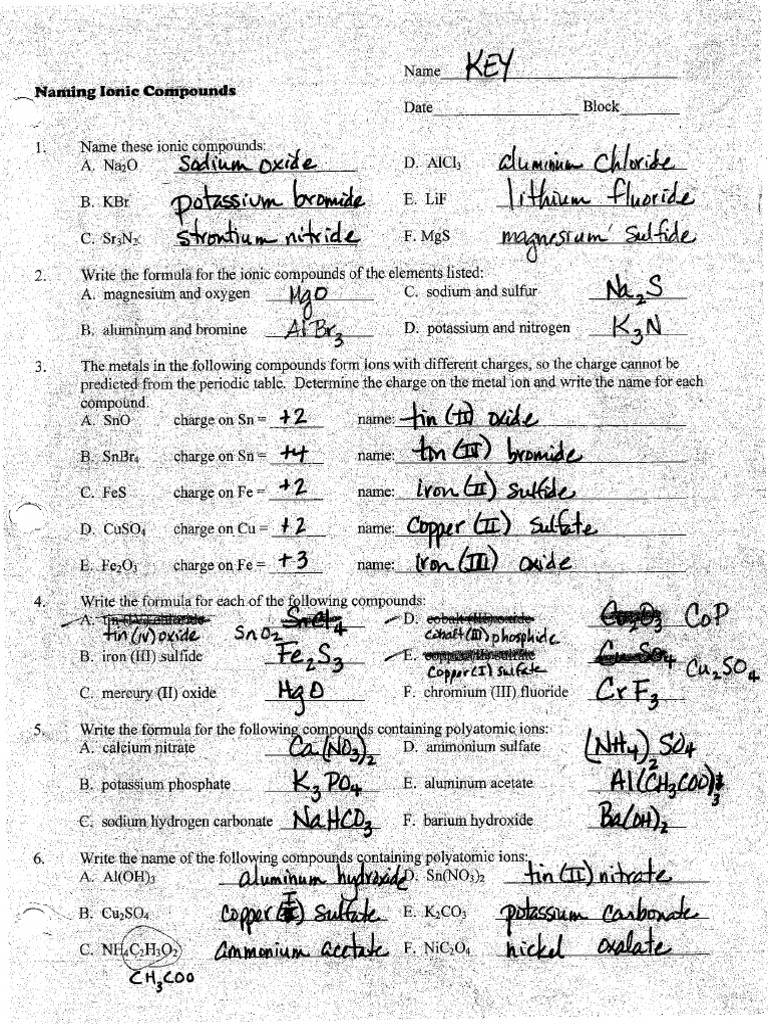 Name KEY
Naming Ionic Compounds
Date Block
1. Name these ionic compounds:
A. Na₂O sodium oxide D. AlCl₃ aluminium chloride
B. KBr potassium bromide E. LiF lithium fluoride
C. Sr₃N₂ strontium nitride F. MgS magnesium sulfide
2. Write the formula for the ionic compounds of the elements listed:
A. magnesium and oxygen MgO C. sodium and sulfur Na₂S
B. aluminum and bromine AlBr₃ D. potassium and nitrogen K₃N
3. The metals in the following compounds form ions with different charges, so the charge cannot be
predicted from the periodic table. Determine the charge on the metal ion and write the name for each
compound.
A. SnO charge on Sn = +2 name: tin (II) oxide
B. SnBr₄ charge on Sn = +4 name: tin (IV) bromide
C. FeS charge on Fe = +2 name: iron (II) sulfide
D. CuSO₄ charge on Cu = +2 name: copper (II) sulfate
E. Fe₂O₃ charge on Fe = +3 name: iron (III) oxide
4. Write the formula for each of the following compounds:
A. D. CoP
tin (IV) oxide SnO₂ cobalt (III) phosphide
B. iron (III) sulfide Fe₂S₃ E. Cu₂SO₄
copper (I) sulfate
C. mercury (II) oxide HgO F. chromium (III) fluoride CrF₃
5. Write the formula for the following compounds containing polyatomic ions:
A. calcium nitrate Ca(NO₃)₂ D. ammonium sulfate (NH₄)₂SO₄
B. potassium phosphate K₃PO₄ E. aluminum acetate Al(CH₃COO)₃
C. sodium hydrogen carbonate NaHCO₃ F. barium hydroxide Ba(OH)₂
6. Write the name of the following compounds containing polyatomic ions:
A. Al(OH)₃ aluminum hydroxide D. Sn(NO₃)₂ tin (II) nitrate
B. Cu₂SO₄ copper (I) sulfate E. K₂CO₃ potassium carbonate
C. NH₄C₂H₃O₂ ammonium acetate F. NiC₂O₄ nickel oxalate
CH₃COO